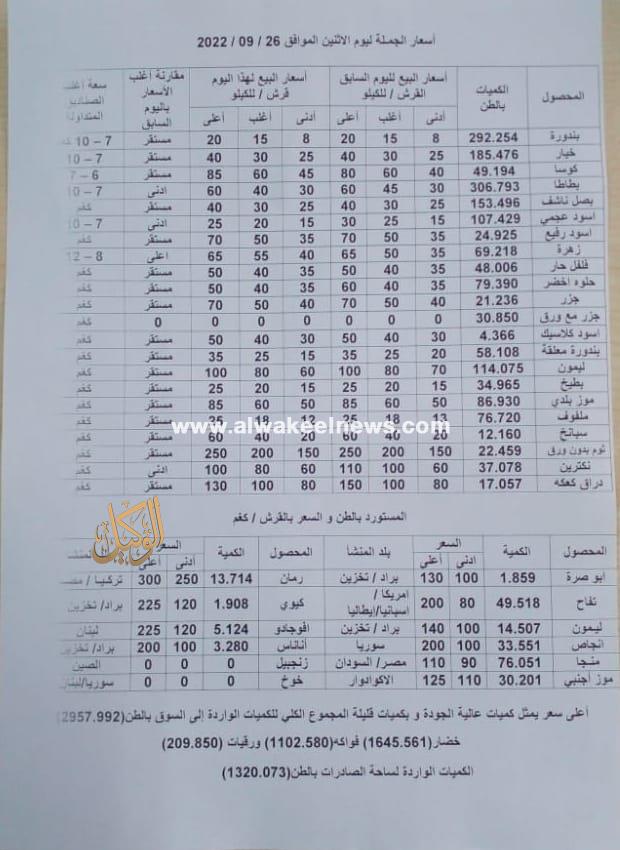 أسعار الجملة ليوم الاثنين الموافق 26 / 09 / 2022
المحصول الكميات بالطن أسعار البيع لليوم السابق القرش / للكيلو أسعار البيع لهذا اليوم قرش / للكيلو مقارنة أغلب الأسعار باليوم السابق سعة أغلب الصناديق المتداولة
أدنى أغلب أعلى أدنى أغلب أعلى
بندورة 292.254 8 15 20 8 15 20 مستقر 7 – 10
خيار 185.476 25 30 40 25 30 40 مستقر 7 – 10
كوسا 49.194 40 60 80 45 60 85 مستقر 6 – 7
بطاطا 306.793 30 45 60 30 40 60 ادنى 7 – 10
بصل ناشف 153.496 25 30 40 25 30 40 مستقر كغم
اسود عجمي 107.429 15 25 30 15 20 25 ادنى 7 – 10
اسود رفيع 24.925 35 50 70 35 50 70 مستقر كغم
زهرة 69.218 35 50 65 40 55 65 اعلى 8 – 12
فلفل حار 48.006 35 40 50 35 40 50 مستقر كغم
حلوه اخضر 79.390 35 40 50 35 40 50 مستقر كغم
جزر 21.236 40 50 70 40 50 70 مستقر كغم
جزر مع ورق 30.850 0 0 0 0 0 0 0 كغم
اسود كلاسيك 4.366 30 40 50 30 40 50 مستقر كغم
بندورة معلقة 58.108 20 25 35 15 25 35 مستقر كغم
ليمون 114.075 70 80 100 60 80 100 مستقر كغم
بطيخ 34.965 15 20 25 15 20 25 مستقر كغم
موز بلدي 86.930 50 60 85 50 60 85 مستقر كغم
ملفوف 76.720 13 18 25 12 18 25 مستقر كغم
www.alwakeelnews.com
سبانخ 12.160 20 40 60 20 40 60 مستقر كغم
ثوم بدون ورق 22.459 150 200 250 150 200 250 مستقر كغم
نكترين 37.078 60 100 110 60 80 100 ادنى كغم
دراق كعكه 17.057 80 100 150 80 100 130 مستقر كغم
المستورد بالطن و السعر بالقرش / كغم
الوكيل
المحصول الكمية السعر بلد المنشا المحصول الكمية السعر
أدنى أعلى أدنى أعلى
ابو صرة 1.859 100 130 براد / تخزين رمان 13.714 250 300 تركيا /
تفاح 49.518 80 200 امريكا / اسبانيا/ايطاليا كيوي 1.908 120 225 براد/ تخزين
ليمون 14.507 100 140 براد / تخزين افوجادو 5.124 120 225 لبنان
انجاص 33.551 100 200 سوريا أناناس 3.280 100 200 براد/ تخزين
منجا 76.051 90 110 مصر/ السودان زنجبيل 0 0 0 الصين
موز أجنبي 30.201 110 125 الاكوادوار خوخ 0 0 0 سوريا/لبنان
أعلى سعر يمثل كميات عالية الجودة و بكميات قليلة المجموع الكلي للكميات الواردة إلى السوق بالطن(2957.992)
خضار(1645.561) فواكه(1102.580) ورقيات (209.850)
الكميات الواردة لساحة الصادرات بالطن(1320.073)